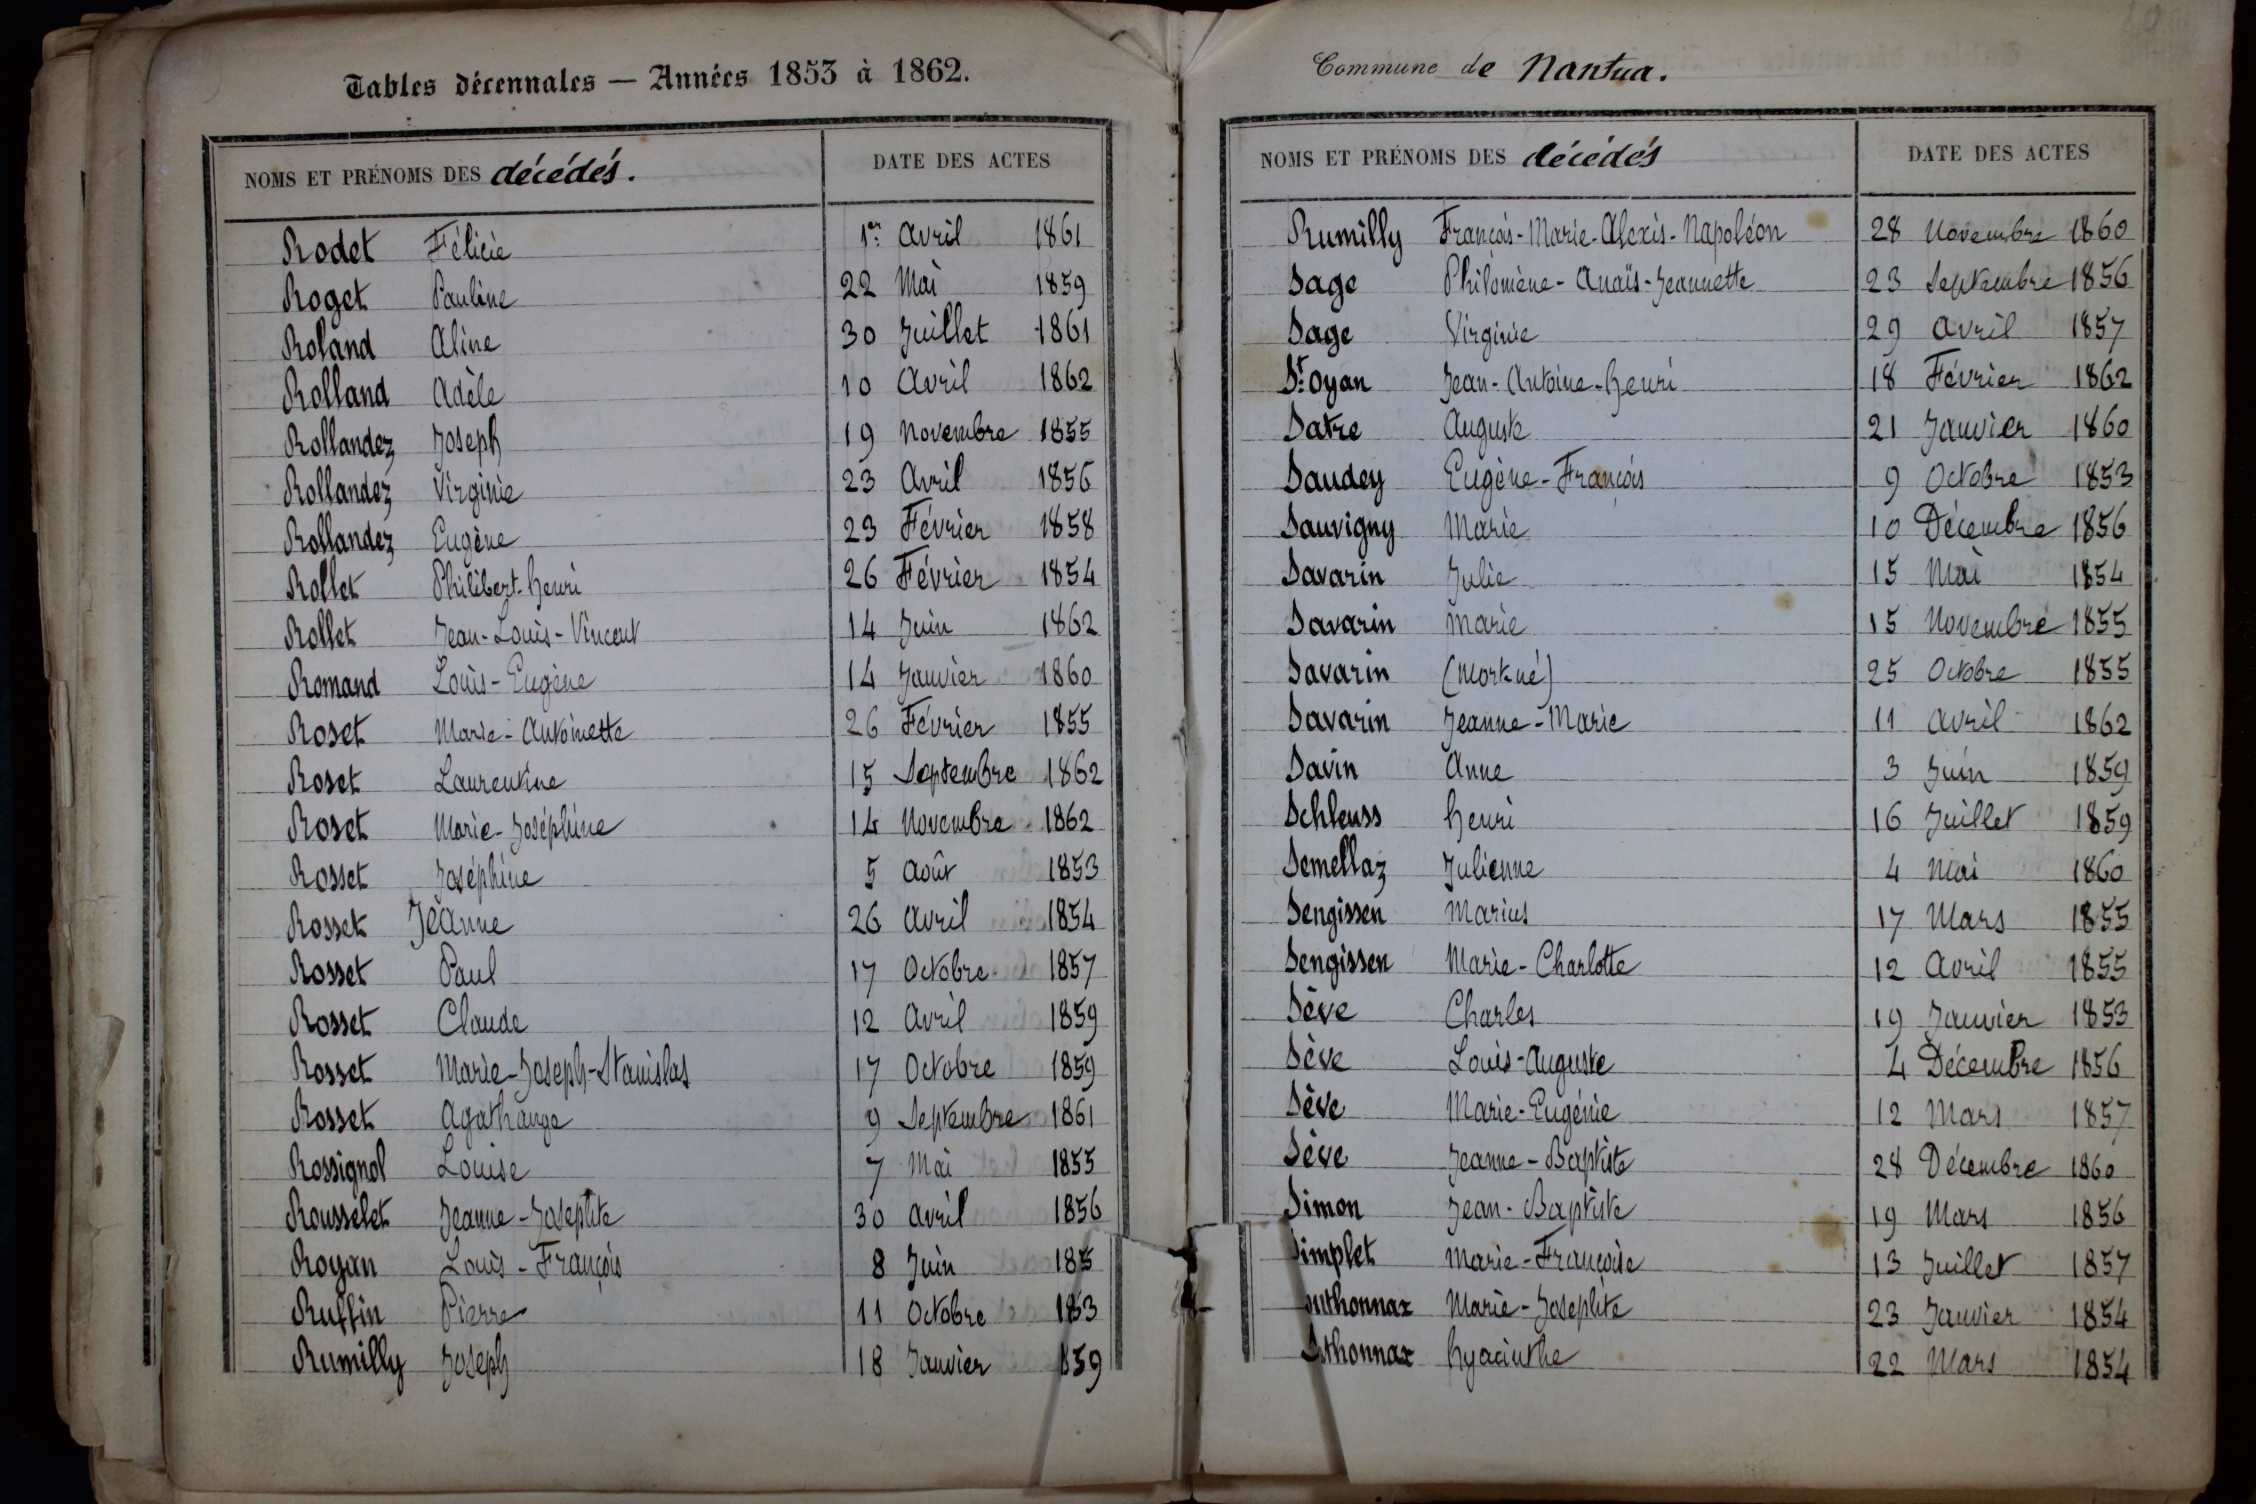 Tables décennales — Années 1853 à 1862.
NOMS ET PRÉNOMS DES décédés. DATE DES ACTES
Rodet Félicie 1er Avril 1861
Roget Pauline 22 Mai 1859
Roland Aline 30 Juillet 1861
Rolland Adèle 10 Avril 1862
Rollandez Joseph 19 Novembre 1855
Rollandez Virginie 23 Avril 1856
Rollandez Eugène 23 Février 1858
Rollet Philibert-henri 26 Février 1854
Rollet Jean-Louis-Vincent 14 Juin 1862
Romand Louis-Eugène 14 Janvier 1860
Roset Marie-Antoinette 26 Février 1855
Roset Laurentine 15 Septembre 1862
Roset Marie-Joséphine 14 Novembre 1862
Rosset Joséphine 5 Août 1853
Rosset Jeanne 26 Avril 1854
Rosset Paul 17 Octobre 1857
Rosset Claude 12 Avril 1859
Rosset Marie-Joseph-Stanislas 17 Octobre 1859
Rosset Agathange 9 Septembre 1861
Rossignol Louise 7 Mai 1855
Rousselet Jeanne-Josephte 30 Avril 1856
Royan Louis-François 8 Juin 185
Ruffin Pierre 11 Octobre 183
Rumilly Joseph 18 Janvier 859
Commune de Nantua.
NOMS ET PRÉNOMS DES décédés DATE DES ACTES
Rumilly François-Marie-Alexis-Napoléon 28 Novembre 1860
Sage Philomène-Anaïs-Jeannette 23 Septembre 1856
Sage Virginie 29 Avril 1857
St. Oyan Jean-Antoine-henri 18 Février 1862
Satre Auguste 21 Janvier 1860
Saudey Eugène-François 9 Octobre 1853
Sauvigny Marie 10 Décembre 1856
Savarin Julie 15 Mai 1854
Savarin Marie 15 Novembre 1855
Savarin (Mort-né) 25 Octobre 1855
Savarin Jeanne-Marie 11 Avril 1862
Savin Anne 3 Juin 1859
Schleuss henri 16 Juillet 1859
Semellaz Julienne 4 Mai 1860
Sengissen Marius 17 Mars 1855
Sengissen Marie-Charlotte 12 Avril 1855
Sève Charles 19 Janvier 1853
Sève Louis-Auguste 4 Décembre 1856
Sève Marie-Eugénie 12 Mars 1857
Sève Jeanne-Baptiste 28 Décembre 1860
Simon Jean-Baptiste 19 Mars 1856
Simplet Marie-Françoise 13 Juillet 1857
outhonnax Marie-Josephte 23 Janvier 1854
Sthonnax hyacinthe 22 Mars 1854